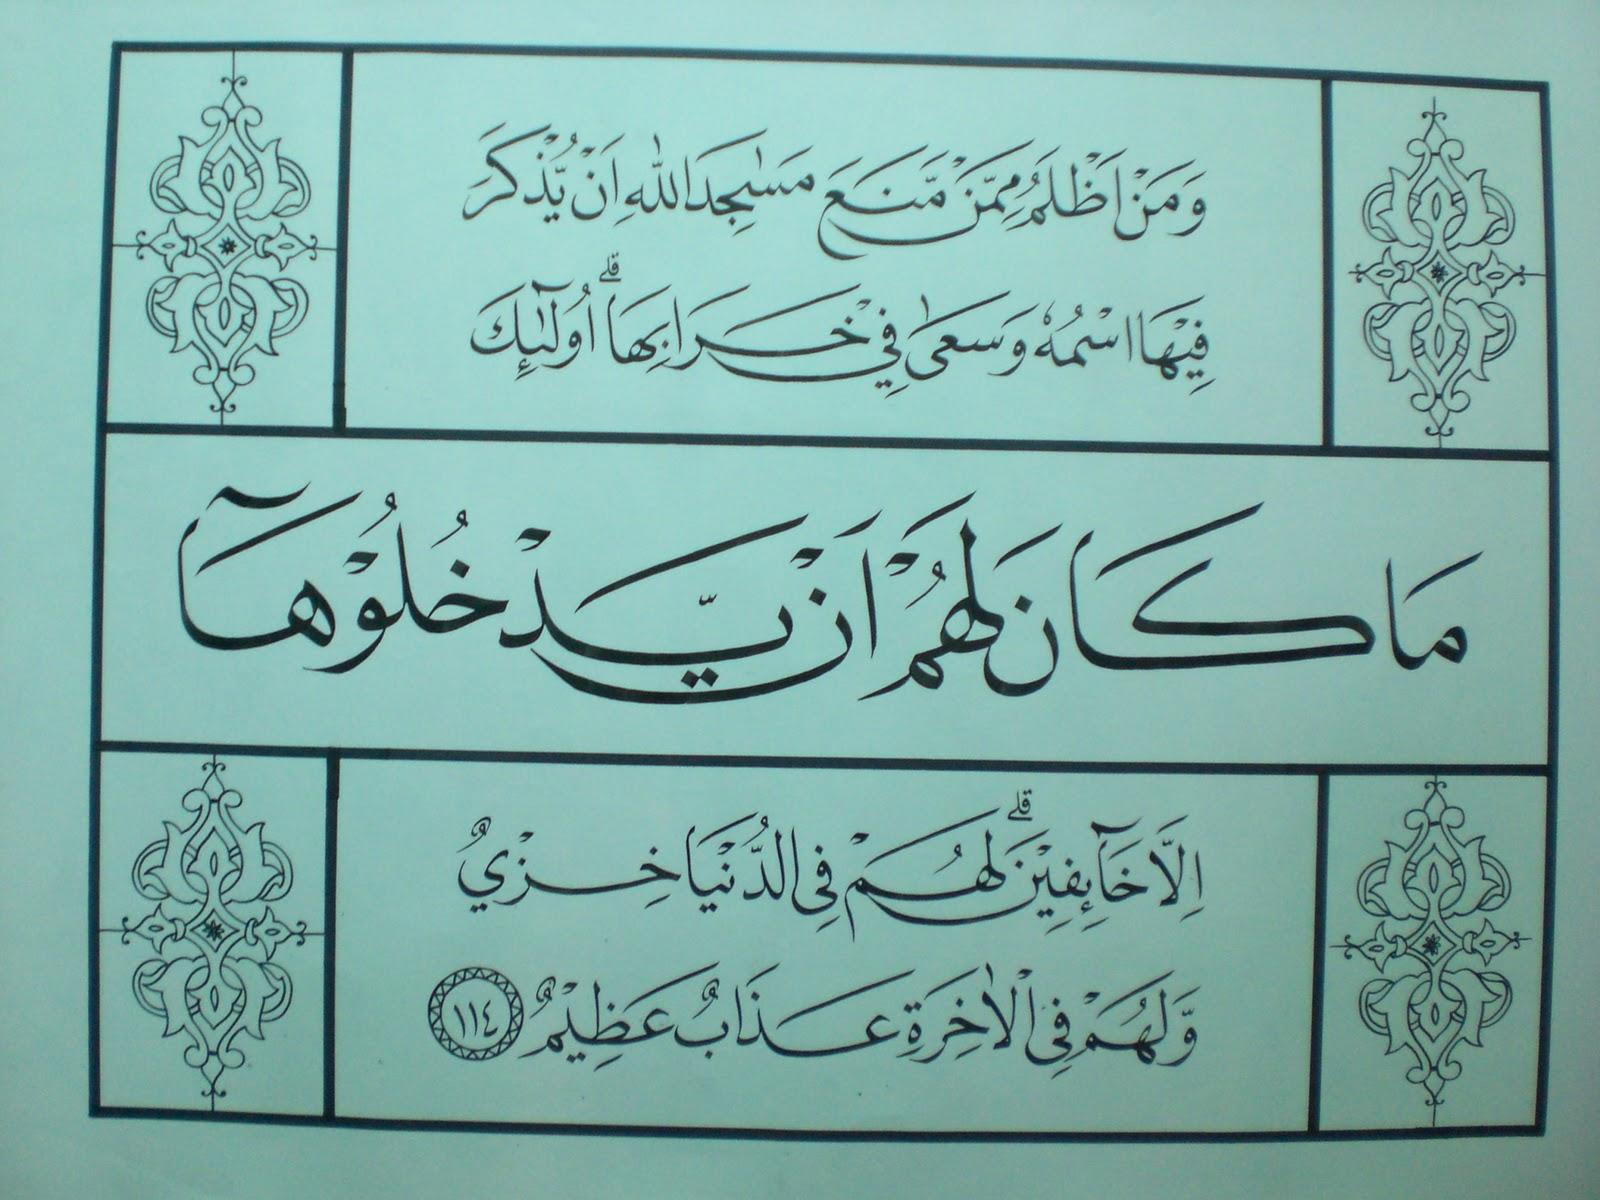 وَمَنْ اَظْلَمُ مِمَّنْ مَّنَعَ مَسٰجِدَ اللّٰهِ اَنْ يُّذْكَرَ
فِيْهَا اسْمُهٗ وَسَعٰى فِيْ خَرَابِهَاۗ اُولٰۤىِٕكَ
مَا كَانَ لَهُمْ اَنْ يَّدْخُلُوْهَآ
اِلَّا خَاۤىِٕفِيْنَۗ لَهُمْ فِى الدُّنْيَا خِزْيٌ
وَّلَهُمْ فِى الْاٰخِرَةِ عَذَابٌ عَظِيْمٌ ١١٤